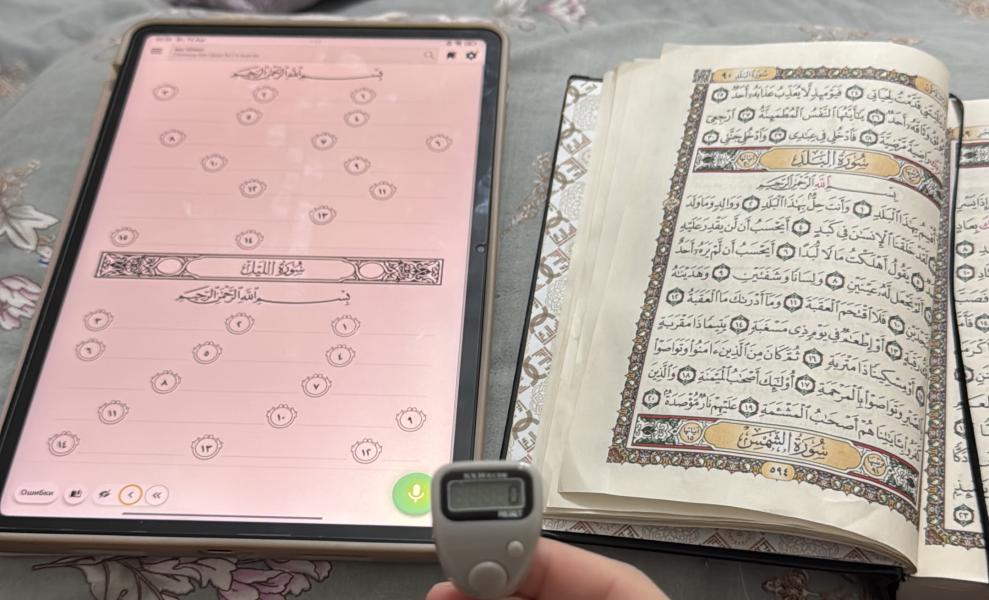 بِسْمِ اللَّهِ الرَّحْمَٰنِ الرَّحِيمِ
١ ٢ ٣
٤ ٥
٦ ٧ ٨
٩ ١٠
١١ ١٢
١٣
١٤ ١٥
سُورَةُ اللَّيْلِ
بِسْمِ اللَّهِ الرَّحْمَٰنِ الرَّحِيمِ
١ ٢ ٣
٤ ٥ ٦
٧ ٨
٩ ١٠ ١١
١٢ ١٣ ١٤
Ошибки
سُورَةُ البَلَدِ ٩٠
قَدَّمْتُ لِحَيَاتِي ٢٤ فَيَوْمَئِذٍ لَّا يُعَذِّبُ عَذَابَهُ أَحَدٌ ٢٥
وَثَاقَهُ أَحَدٌ ٢٦ يَا أَيَّتُهَا النَّفْسُ الْمُطْمَئِنَّةُ ٢٧ ارْجِعِي
مَّرْضِيَّةً ٢٨ فَادْخُلِي فِي عِبَادِي ٢٩ وَادْخُلِي جَنَّتِي ٣٠
سُورَةُ البَلَدِ
بِسْمِ اللَّهِ الرَّحْمَٰنِ الرَّحِيمِ
أُقْسِمُ بِهَذَا الْبَلَدِ ١ وَأَنتَ حِلٌّ بِهَذَا الْبَلَدِ ٢ وَوَالِدٍ وَمَا وَلَدَ
خَلَقْنَا الْإِنسَانَ فِي كَبَدٍ ٤ أَيَحْسَبُ أَن لَّن يَقْدِرَ عَلَيْهِ
يَقُولُ أَهْلَكْتُ مَالًا لُّبَدًا ٦ أَيَحْسَبُ أَن لَّمْ يَرَهُ أَحَدٌ
نَجْعَل لَّهُ عَيْنَيْنِ ٨ وَلِسَانًا وَشَفَتَيْنِ ٩ وَهَدَيْنَاهُ
فَلَا اقْتَحَمَ الْعَقَبَةَ ١١ وَمَا أَدْرَاكَ مَا الْعَقَبَةُ ١٢
أَوْ إِطْعَامٌ فِي يَوْمٍ ذِي مَسْغَبَةٍ ١٤ يَتِيمًا ذَا مَقْرَبَةٍ
أَوْ مِسْكِينًا ذَا مَتْرَبَةٍ ١٦ ثُمَّ كَانَ مِنَ الَّذِينَ آمَنُوا وَتَوَاصَوْا
وَتَوَاصَوْا بِالْمَرْحَمَةِ ١٧ أُولَٰئِكَ أَصْحَابُ الْمَيْمَنَةِ ١٨ وَالَّذِينَ
بِآيَاتِنَا هُمْ أَصْحَابُ الْمَشْأَمَةِ ١٩ عَلَيْهِمْ نَارٌ مُّؤْصَدَةٌ ٢٠
سُورَةُ الشَّمْسِ
٥٩٤